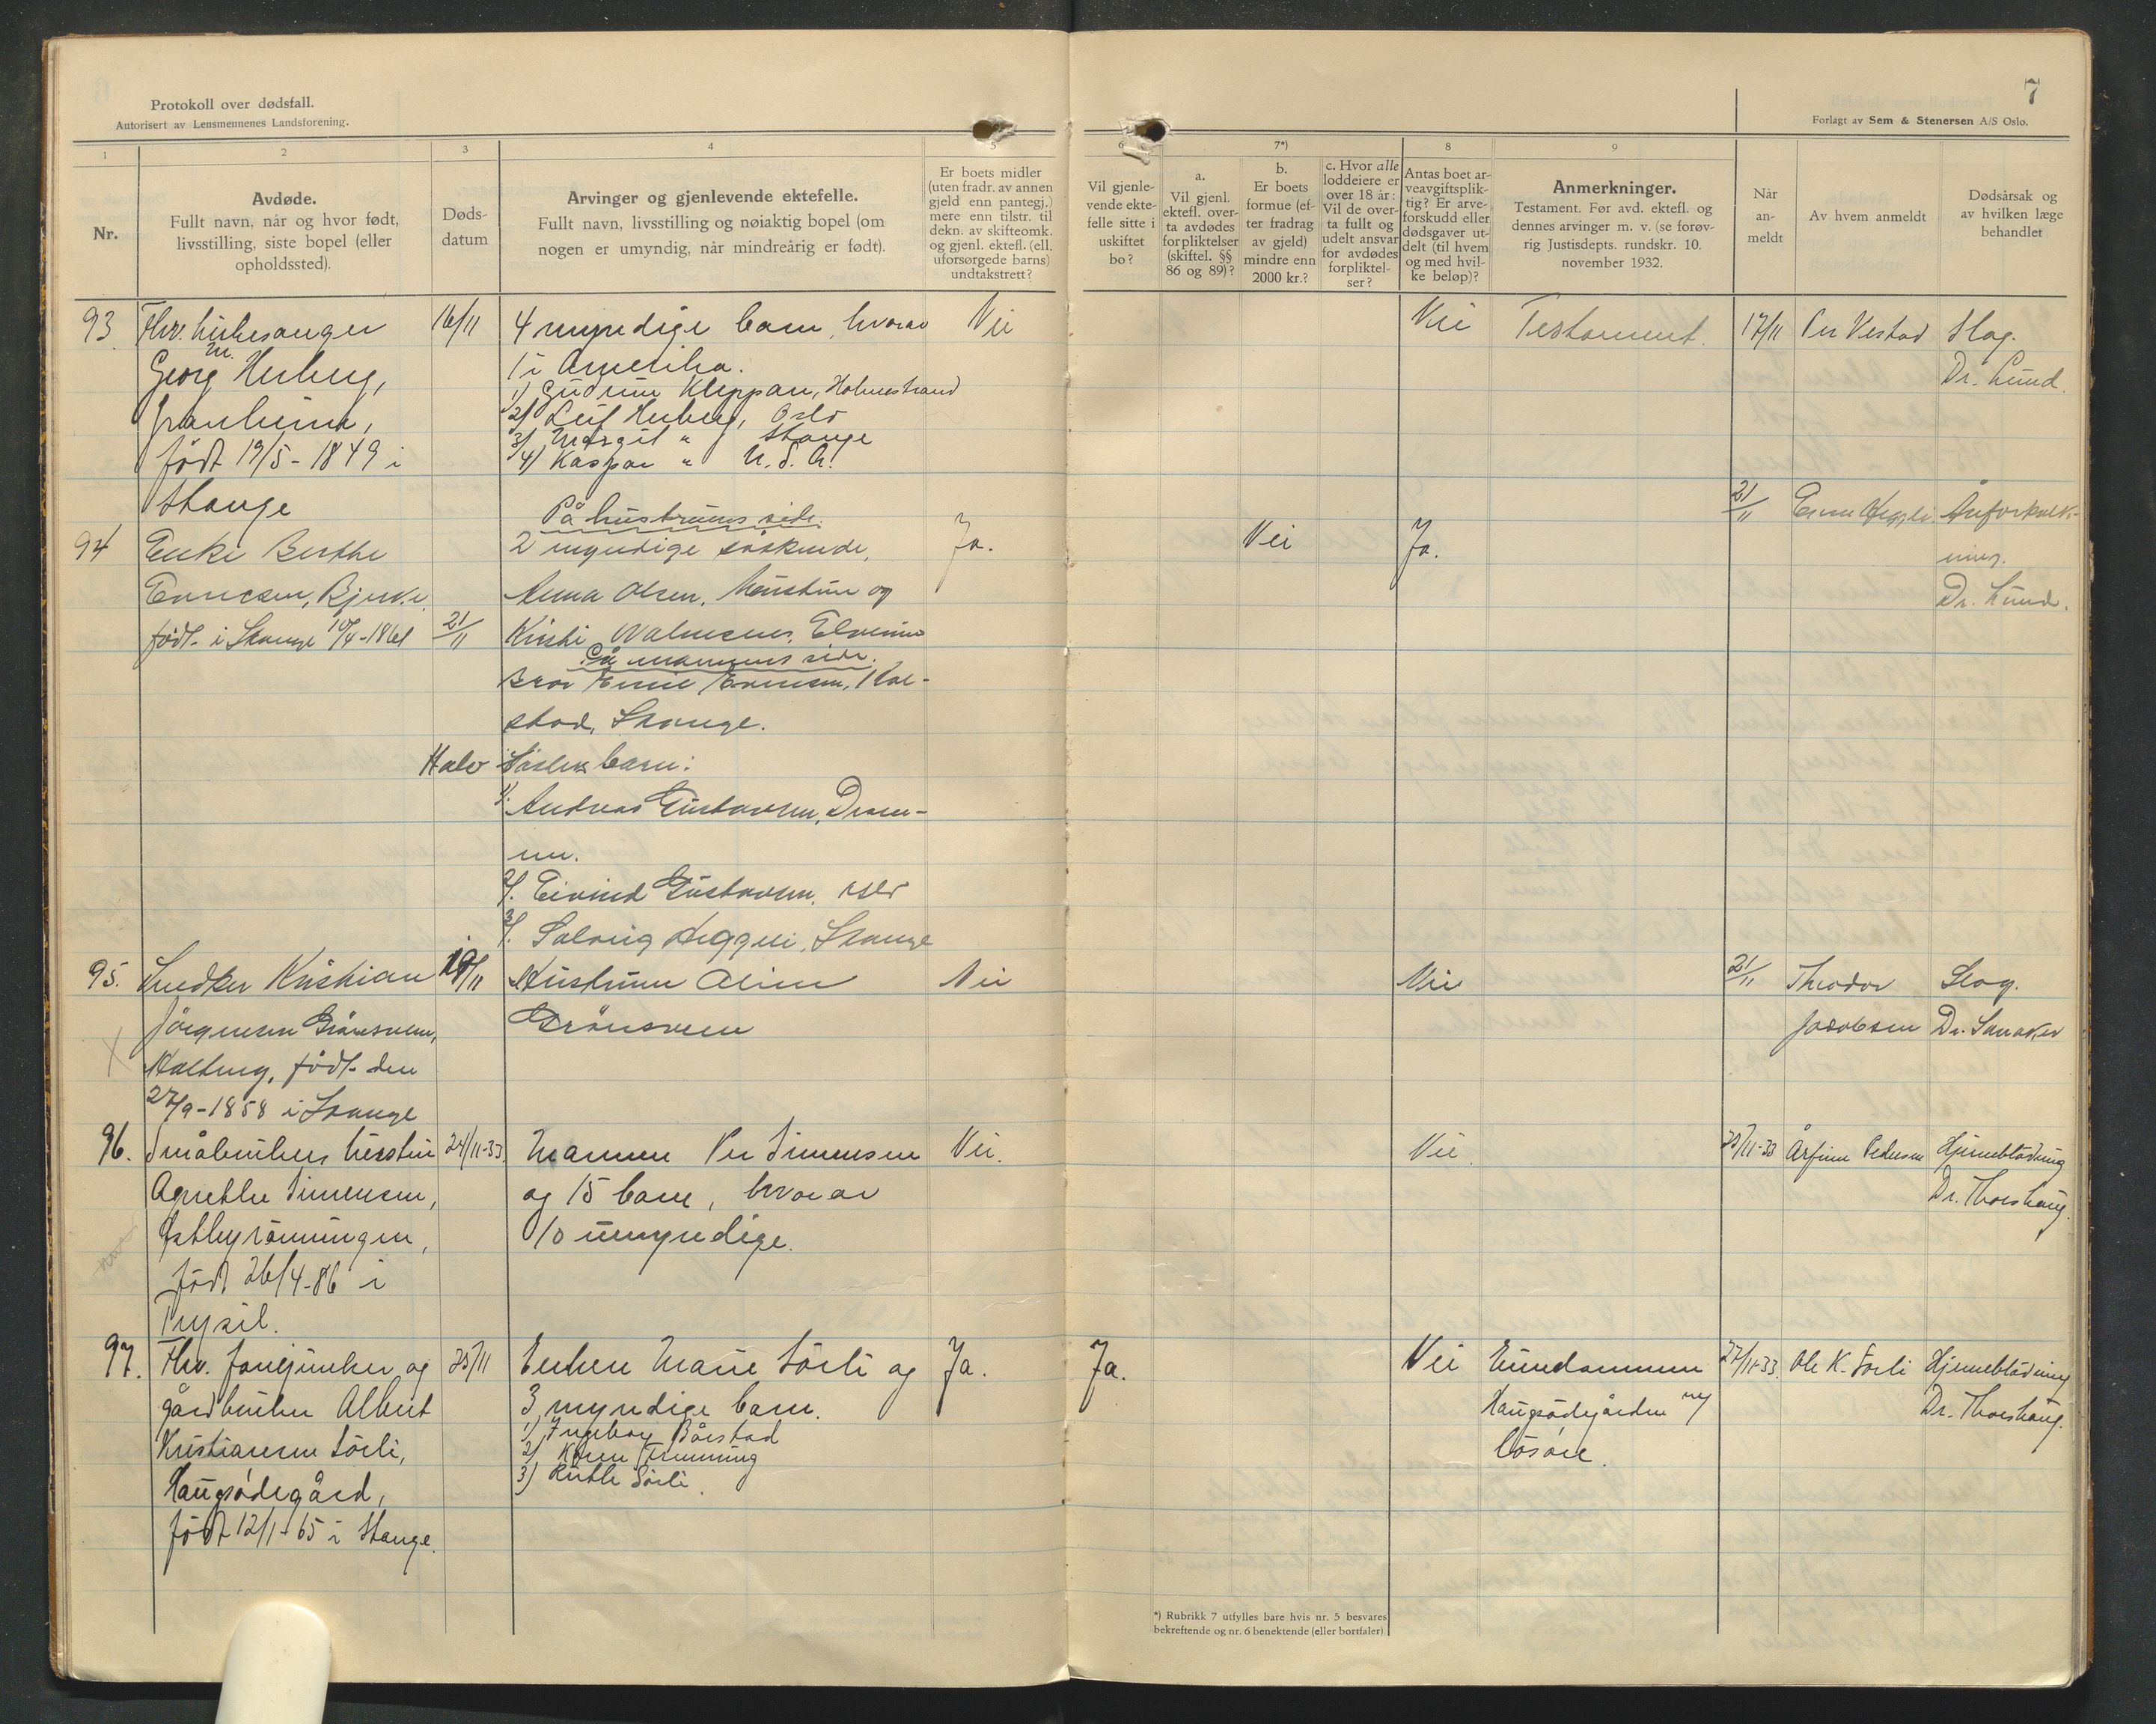 Protokoll over dødsfall.
Autorisert av Lensmennenes Landsforening.
7
Forlagt av Sem & Stenersen A/S Oslo.
1
2
3
4
5
6
7*)
8
9
Nr.
Avdøde.
Fullt navn, når og hvor født,
livsstilling, siste bopel (eller
opholdssted).
Døds-
datum
Arvinger og gjenlevende ektefelle.
Fullt navn, livsstilling og nøiaktig bopel (om
nogen er umyndig, når mindreårig er født).
Er boets midler
(uten fradr. av annen
gjeld enn pantegj.)
mere enn tilstr. til
dekn. av skifteomk.
og gjenl. ektefl. (ell.
uforsørgede barns)
undtakstrett?
Vil gjenle-
vende ekte-
felle sitte i
uskiftet
bo?
a.
Vil gjenl.
ektefl. over-
ta avdødes
forpliktelser
(skiftel. §§
86 og 89)?
b.
Er boets
formue (ef-
ter fradrag
av gjeld)
mindre enn
2000 kr.?
c. Hvor alle
loddeiere er
over 18 år:
Vil de over-
ta fullt og
udelt ansvar
for avdødes
forpliktel-
ser?
Antas boet ar-
veavgiftsplik-
tig? Er arve-
forskudd eller
dødsgaver ut-
delt (til hvem
og med hvil-
ke beløp)?
Anmerkninger.
Testament. Før avd. ektefl. og
dennes arvinger m. v. (se forøv-
rig Justisdepts. rundskr. 10.
november 1932.
Når
an-
meldt
Av hvem anmeldt
Dødsårsak og
av hvilken læge
behandlet
93.
Fhv. kirkesanger
Georg M. Herberg,
Granheim,
født 19/5-1849 i
Stange
16/11
4 myndige barn, hvorav
1 i Amerika.
1) Gudrun Kleppan, Holmestrand
2) Leif Herberg, Oslo
3) Margit " Stange
4) Kaspar " U.S.A.
Nei
Nei
Testament.
17/11
Per Vestad
Slag.
Dr. Lund.
94
Enke Berthe
Evensen, Bjerke,
født i Stange 10/4-1861
21/11
På hustruens side.
2 myndige søskende,
Anna Olsen, hustru og
Kristi
På mannens side.
Bror Emil Evensen,
stad, Stange.
Halv Søsken barn:
1/. Andreas Gustavsen, Dram-
en.
2/. Eivind Gustavsen, Oslo
3/. Solveig Heggeli, Stange
Ja.
Nei
Ja.
21/11
Åreforkalk-
ning.
Dr. Lund.
95.
Snedker Kristian
Jørgensen Grønsveen,
født den
27/9-1858 i Stange
19/11
Hustruen Oline
Grønsveen
Nei
Nei
21/11
Theodor
Jacobsen
Slag.
Dr. Sanaker
96.
Småbrukers hustru
Agnethe Simensen,
Østbyrønningen,
født 26/4-86 i
Trysil.
24/11-33.
Mannen Per Simensen
og 15 barn, hvorav
10 umyndige.
Nei.
Nei.
25/11-33
Arfinn Pedersen
Hjerneblødning
Dr. Thorshaug.
97.
Fhv. fanejunker og
gårdbruker Albert
Kristiansen Sörli,
Haugsödegård,
født 12/1-65 i Stange.
25/11
Enken Marie Sörli og
3 myndige barn.
1) Ingeborg Bårstad
2) Karen Flemming
3) Ruth Sörli.
Ja.
Ja.
Nei
Eiendommen
Haugsödegården og
lösöre.
27/11-33.
Ole K. Sörli
Hjerneblödning
Dr. Thorshaug.
*) Rubrikk 7 utfylles bare hvis nr. 5 besvares
bekreftende og nr. 6 benektende (eller bortfaler).